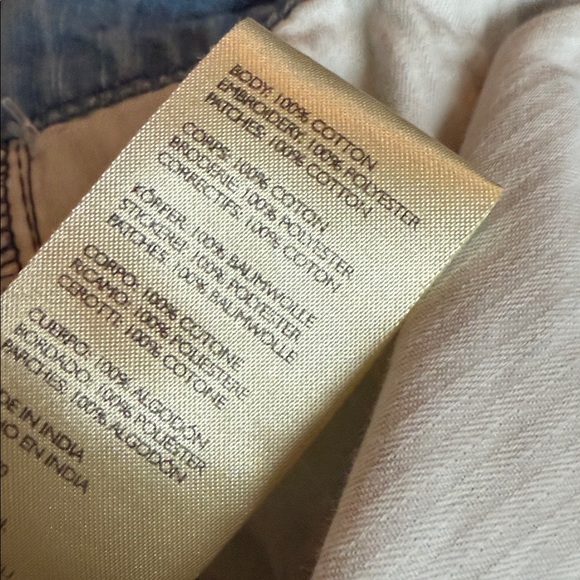 BODY: 100% COTTON
EMBROIDERY: 100% POLYESTER
PATCHES: 100% COTTON
CORPS: 100% COTON
BRODERIE: 100% POLYESTER
CORRECTIFS: 100% COTON
KÖRFER: 100% BAUMWOLLE
STICKEREI: 100% POLYESTER
PATCHES: 100% BAUMWOLLE
CORPO: 100% COTONE
RICAMO: 100% POLIESTERE
CEROTTI: 100% COTONE
CUERPO: 100% ALGODÓN
BORDADO: 100% POLIÉSTER
PARCHES: 100% ALGODÓN
DE IN INDIA
HO EN INDIA